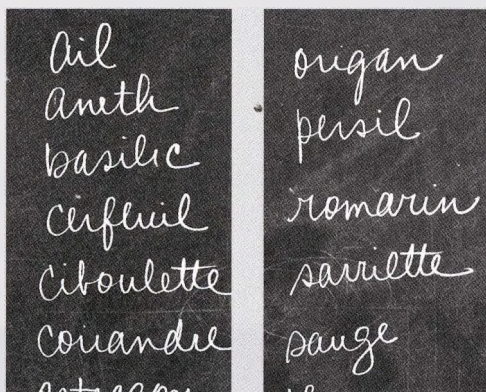 ail
aneth
basilic
cerfeuil
ciboulette
coriandre
estragon
origan
persil
romarin
sarriette
sauge